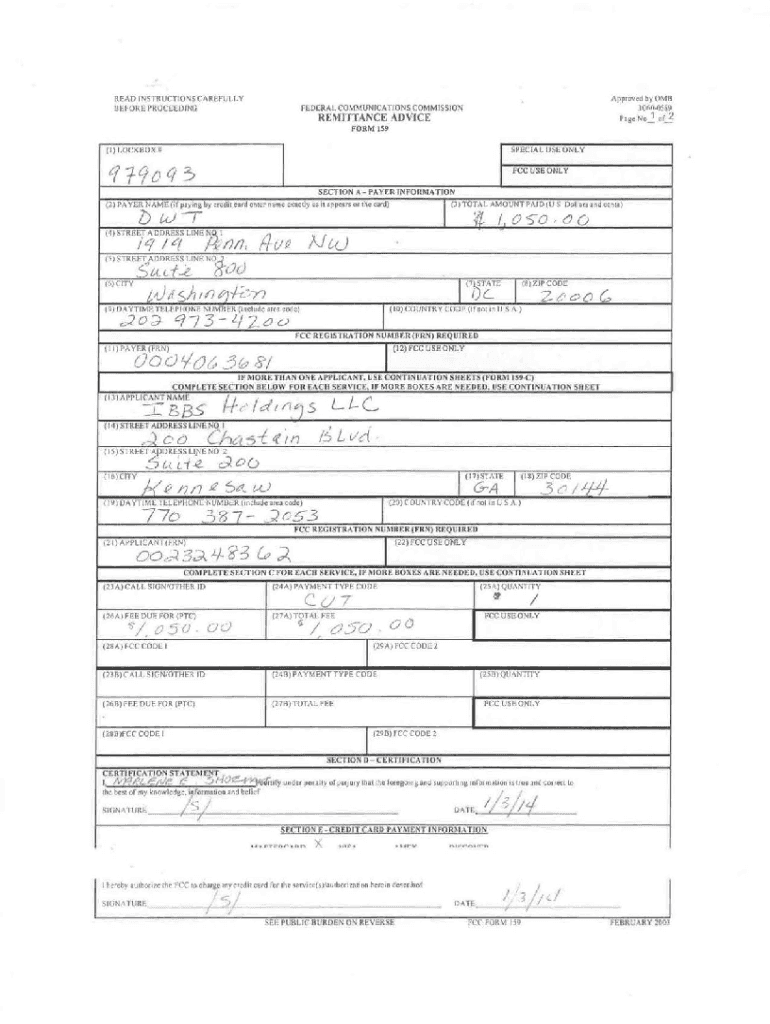 READ INSTRUCTIONS CAREFULLY
BEFORE PROCEEDING
FEDERAL COMMUNICATIONS COMMISSION
REMITTANCE ADVICE
FORM 159
Approved by OMB
3060-0589
Page No 1 of 2
(1) LOCKBOX #
979093
SPECIAL USE ONLY
FCC USE ONLY
SECTION A - PAYER INFORMATION
(2) PAYER NAME (if paying by credit card enter name exactly as it appears on the card)
DWT
(3) TOTAL AMOUNT PAID (U.S. Dollars and cents)
$ 1,050.00
(4) STREET ADDRESS LINE NO. 1
1919 Penn. Ave NW
(5) STREET ADDRESS LINE NO. 2
Suite 800
(6) CITY
Washington
(7) STATE
DC
(8) ZIP CODE
20006
(9) DAYTIME TELEPHONE NUMBER (include area code)
202 973-4200
(10) COUNTRY CODE (if not in U.S.A.)
FCC REGISTRATION NUMBER (FRN) REQUIRED
(11) PAYER (FRN)
0004063681
(12) FCC USE ONLY
IF MORE THAN ONE APPLICANT, USE CONTINUATION SHEETS (FORM 159-C)
COMPLETE SECTION BELOW FOR EACH SERVICE, IF MORE BOXES ARE NEEDED, USE CONTINUATION SHEET
(13) APPLICANT NAME
IBBS Holdings LLC
(14) STREET ADDRESS LINE NO. 1
200 Chastein Blvd.
(15) STREET ADDRESS LINE NO. 2
Suite 200
(16) CITY
Kennesaw
(17) STATE
GA
(18) ZIP CODE
30144
(19) DAYTIME TELEPHONE NUMBER (include area code)
770 387-2053
(20) COUNTRY CODE (if not in U.S.A.)
FCC REGISTRATION NUMBER (FRN) REQUIRED
(21) APPLICANT (FRN)
0023248362
(22) FCC USE ONLY
COMPLETE SECTION C FOR EACH SERVICE, IF MORE BOXES ARE NEEDED, USE CONTINUATION SHEET
(23A) CALL SIGN/OTHER ID
(24A) PAYMENT TYPE CODE
CUT
(25A) QUANTITY
1
(26A) FEE DUE FOR (PTC)
$1,050.00
(27A) TOTAL FEE
$1,050.00
FCC USE ONLY
(28A) FCC CODE 1
(29A) FCC CODE 2
(23B) CALL SIGN/OTHER ID
(24B) PAYMENT TYPE CODE
(25B) QUANTITY
(26B) FEE DUE FOR (PTC)
(27B) TOTAL FEE
FCC USE ONLY
(28B) FCC CODE 1
(29B) FCC CODE 2
SECTION D - CERTIFICATION
CERTIFICATION STATEMENT
I, MARLENE E. certify under penalty of perjury that the foregoing and supporting information is true and correct to
the best of my knowledge, information and belief
SIGNATURE /S/ DATE 1/3/14
SECTION E - CREDIT CARD PAYMENT INFORMATION
MASTERCARD X VISA AMEX DISCOVER
I hereby authorize the FCC to charge my credit card for the service(s)/authorization herein described
SIGNATURE /S/ DATE 1/3/14
SEE PUBLIC BURDEN ON REVERSE
FCC FORM 159
FEBRUARY 2003